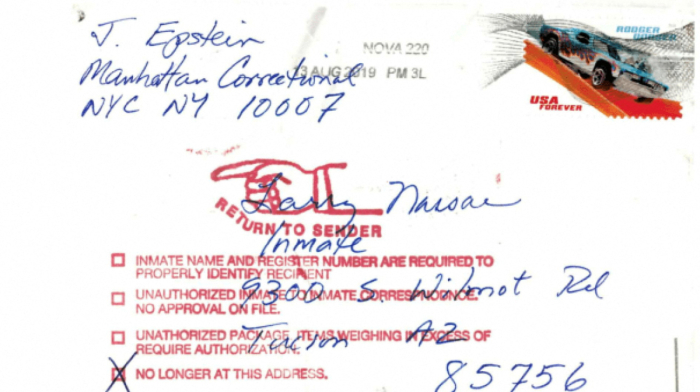 J. Epstein
Manhattan Correctional
NYC NY 10007
NOVA 220
13 AUG 2019 PM 3L
RODGER DODGER
USA
FOREVER
RETURN TO SENDER
Larry Nassar
Inmate
9300 S. Wilmot Rd
Tucson AZ
85756
INMATE NAME AND REGISTER NUMBER ARE REQUIRED TO
PROPERLY IDENTIFY RECIPIENT
UNAUTHORIZED INMATE TO INMATE CORRESPONDENCE.
NO APPROVAL ON FILE.
UNATHORIZED PACKAGE, ITEMS WEIGHING IN EXCESS OF
REQUIRE AUTHORIZATION.
NO LONGER AT THIS ADDRESS.